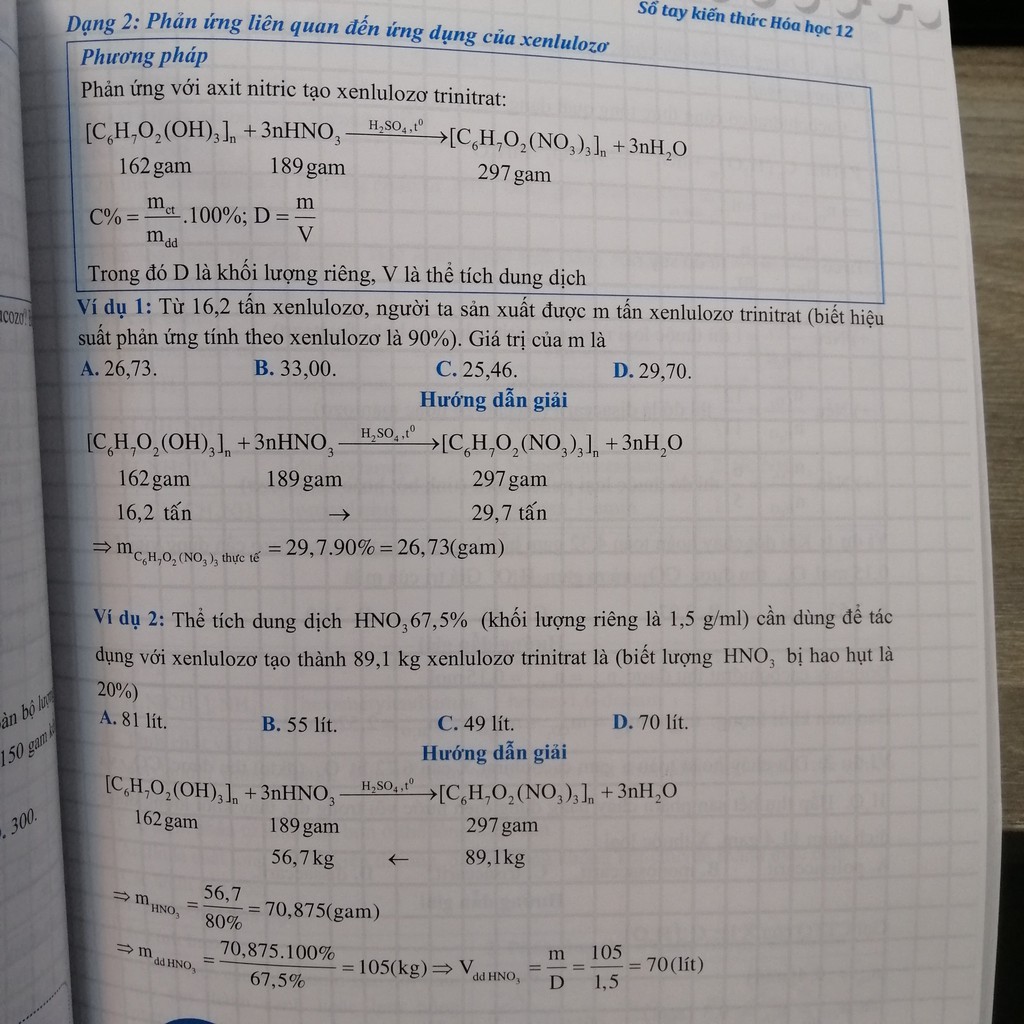 Sổ tay kiến thức Hóa học 12
Dạng 2: Phản ứng liên quan đến ứng dụng của xenlulozơ
Phương pháp
Phản ứng với axit nitric tạo xenlulozơ trinitrat:
[C₆H₇O₂(OH)₃]ₙ + 3nHNO₃ —H₂SO₄,t⁰→ [C₆H₇O₂(NO₃)₃]ₙ + 3nH₂O
162 gam 189 gam 297 gam
C% = m_ct/m_dd .100%; D = m/V
Trong đó D là khối lượng riêng, V là thể tích dung dịch
Ví dụ 1: Từ 16,2 tấn xenlulozơ, người ta sản xuất được m tấn xenlulozơ trinitrat (biết hiệu
suất phản ứng tính theo xenlulozơ là 90%). Giá trị của m là
A. 26,73. B. 33,00. C. 25,46. D. 29,70.
Hướng dẫn giải
[C₆H₇O₂(OH)₃]ₙ + 3nHNO₃ —H₂SO₄,t⁰→ [C₆H₇O₂(NO₃)₃]ₙ + 3nH₂O
162 gam 189 gam 297 gam
16,2 tấn → 29,7 tấn
⇒ m C₆H₇O₂(NO₃)₃ thực tế = 29,7.90% = 26,73(gam)
Ví dụ 2: Thể tích dung dịch HNO₃ 67,5% (khối lượng riêng là 1,5 g/ml) cần dùng để tác
dụng với xenlulozơ tạo thành 89,1 kg xenlulozơ trinitrat là (biết lượng HNO₃ bị hao hụt là
20%)
A. 81 lít. B. 55 lít. C. 49 lít. D. 70 lít.
Hướng dẫn giải
[C₆H₇O₂(OH)₃]ₙ + 3nHNO₃ —H₂SO₄,t⁰→ [C₆H₇O₂(NO₃)₃]ₙ + 3nH₂O
162 gam 189 gam 297 gam
56,7 kg ← 89,1kg
⇒ m HNO₃ = 56,7/80% = 70,875(gam)
⇒ m dd HNO₃ = 70,875.100%/67,5% = 105(kg) ⇒ V dd HNO₃ = m/D = 105/1,5 = 70(lít)
150 gam
300.